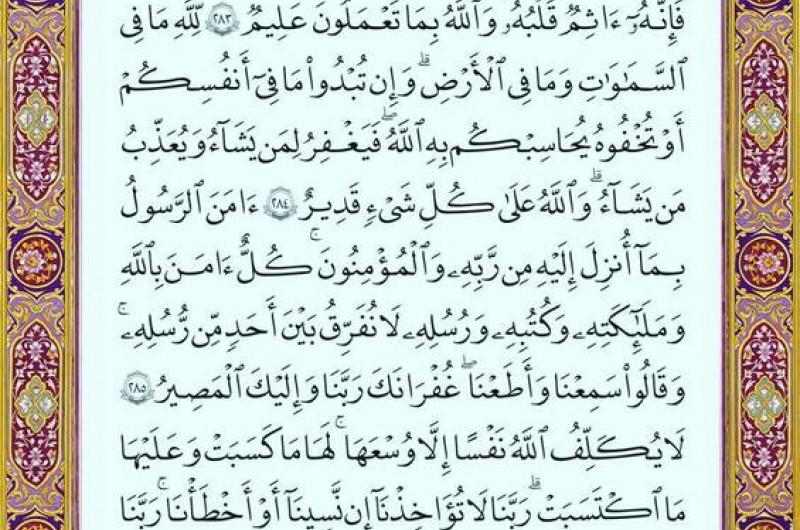 فَإِنَّهُۥٓ ءَاثِمٌ قَلْبُهُۥ وَٱللَّهُ بِمَا تَعْمَلُونَ عَلِيمٌ ٢٨٣ لِّلَّهِ مَا فِى
ٱلسَّمَٰوَٰتِ وَمَا فِى ٱلْأَرْضِ ۗ وَإِن تُبْدُوا۟ مَا فِىٓ أَنفُسِكُمْ
أَوْ تُخْفُوهُ يُحَاسِبْكُم بِهِ ٱللَّهُ ۖ فَيَغْفِرُ لِمَن يَشَآءُ وَيُعَذِّبُ
مَن يَشَآءُ ۗ وَٱللَّهُ عَلَىٰ كُلِّ شَىْءٍ قَدِيرٌ ٢٨٤ ءَامَنَ ٱلرَّسُولُ
بِمَآ أُنزِلَ إِلَيْهِ مِن رَّبِّهِۦ وَٱلْمُؤْمِنُونَ ۚ كُلٌّ ءَامَنَ بِٱللَّهِ
وَمَلَٰٓئِكَتِهِۦ وَكُتُبِهِۦ وَرُسُلِهِۦ لَا نُفَرِّقُ بَيْنَ أَحَدٍ مِّن رُّسُلِهِۦ ۚ
وَقَالُوا۟ سَمِعْنَا وَأَطَعْنَا ۖ غُفْرَانَكَ رَبَّنَا وَإِلَيْكَ ٱلْمَصِيرُ ٢٨٥
لَا يُكَلِّفُ ٱللَّهُ نَفْسًا إِلَّا وُسْعَهَا ۚ لَهَا مَا كَسَبَتْ وَعَلَيْهَا
مَا ٱكْتَسَبَتْ ۗ رَبَّنَا لَا تُؤَاخِذْنَآ إِن نَّسِينَآ أَوْ أَخْطَأْنَا ۚ رَبَّنَا